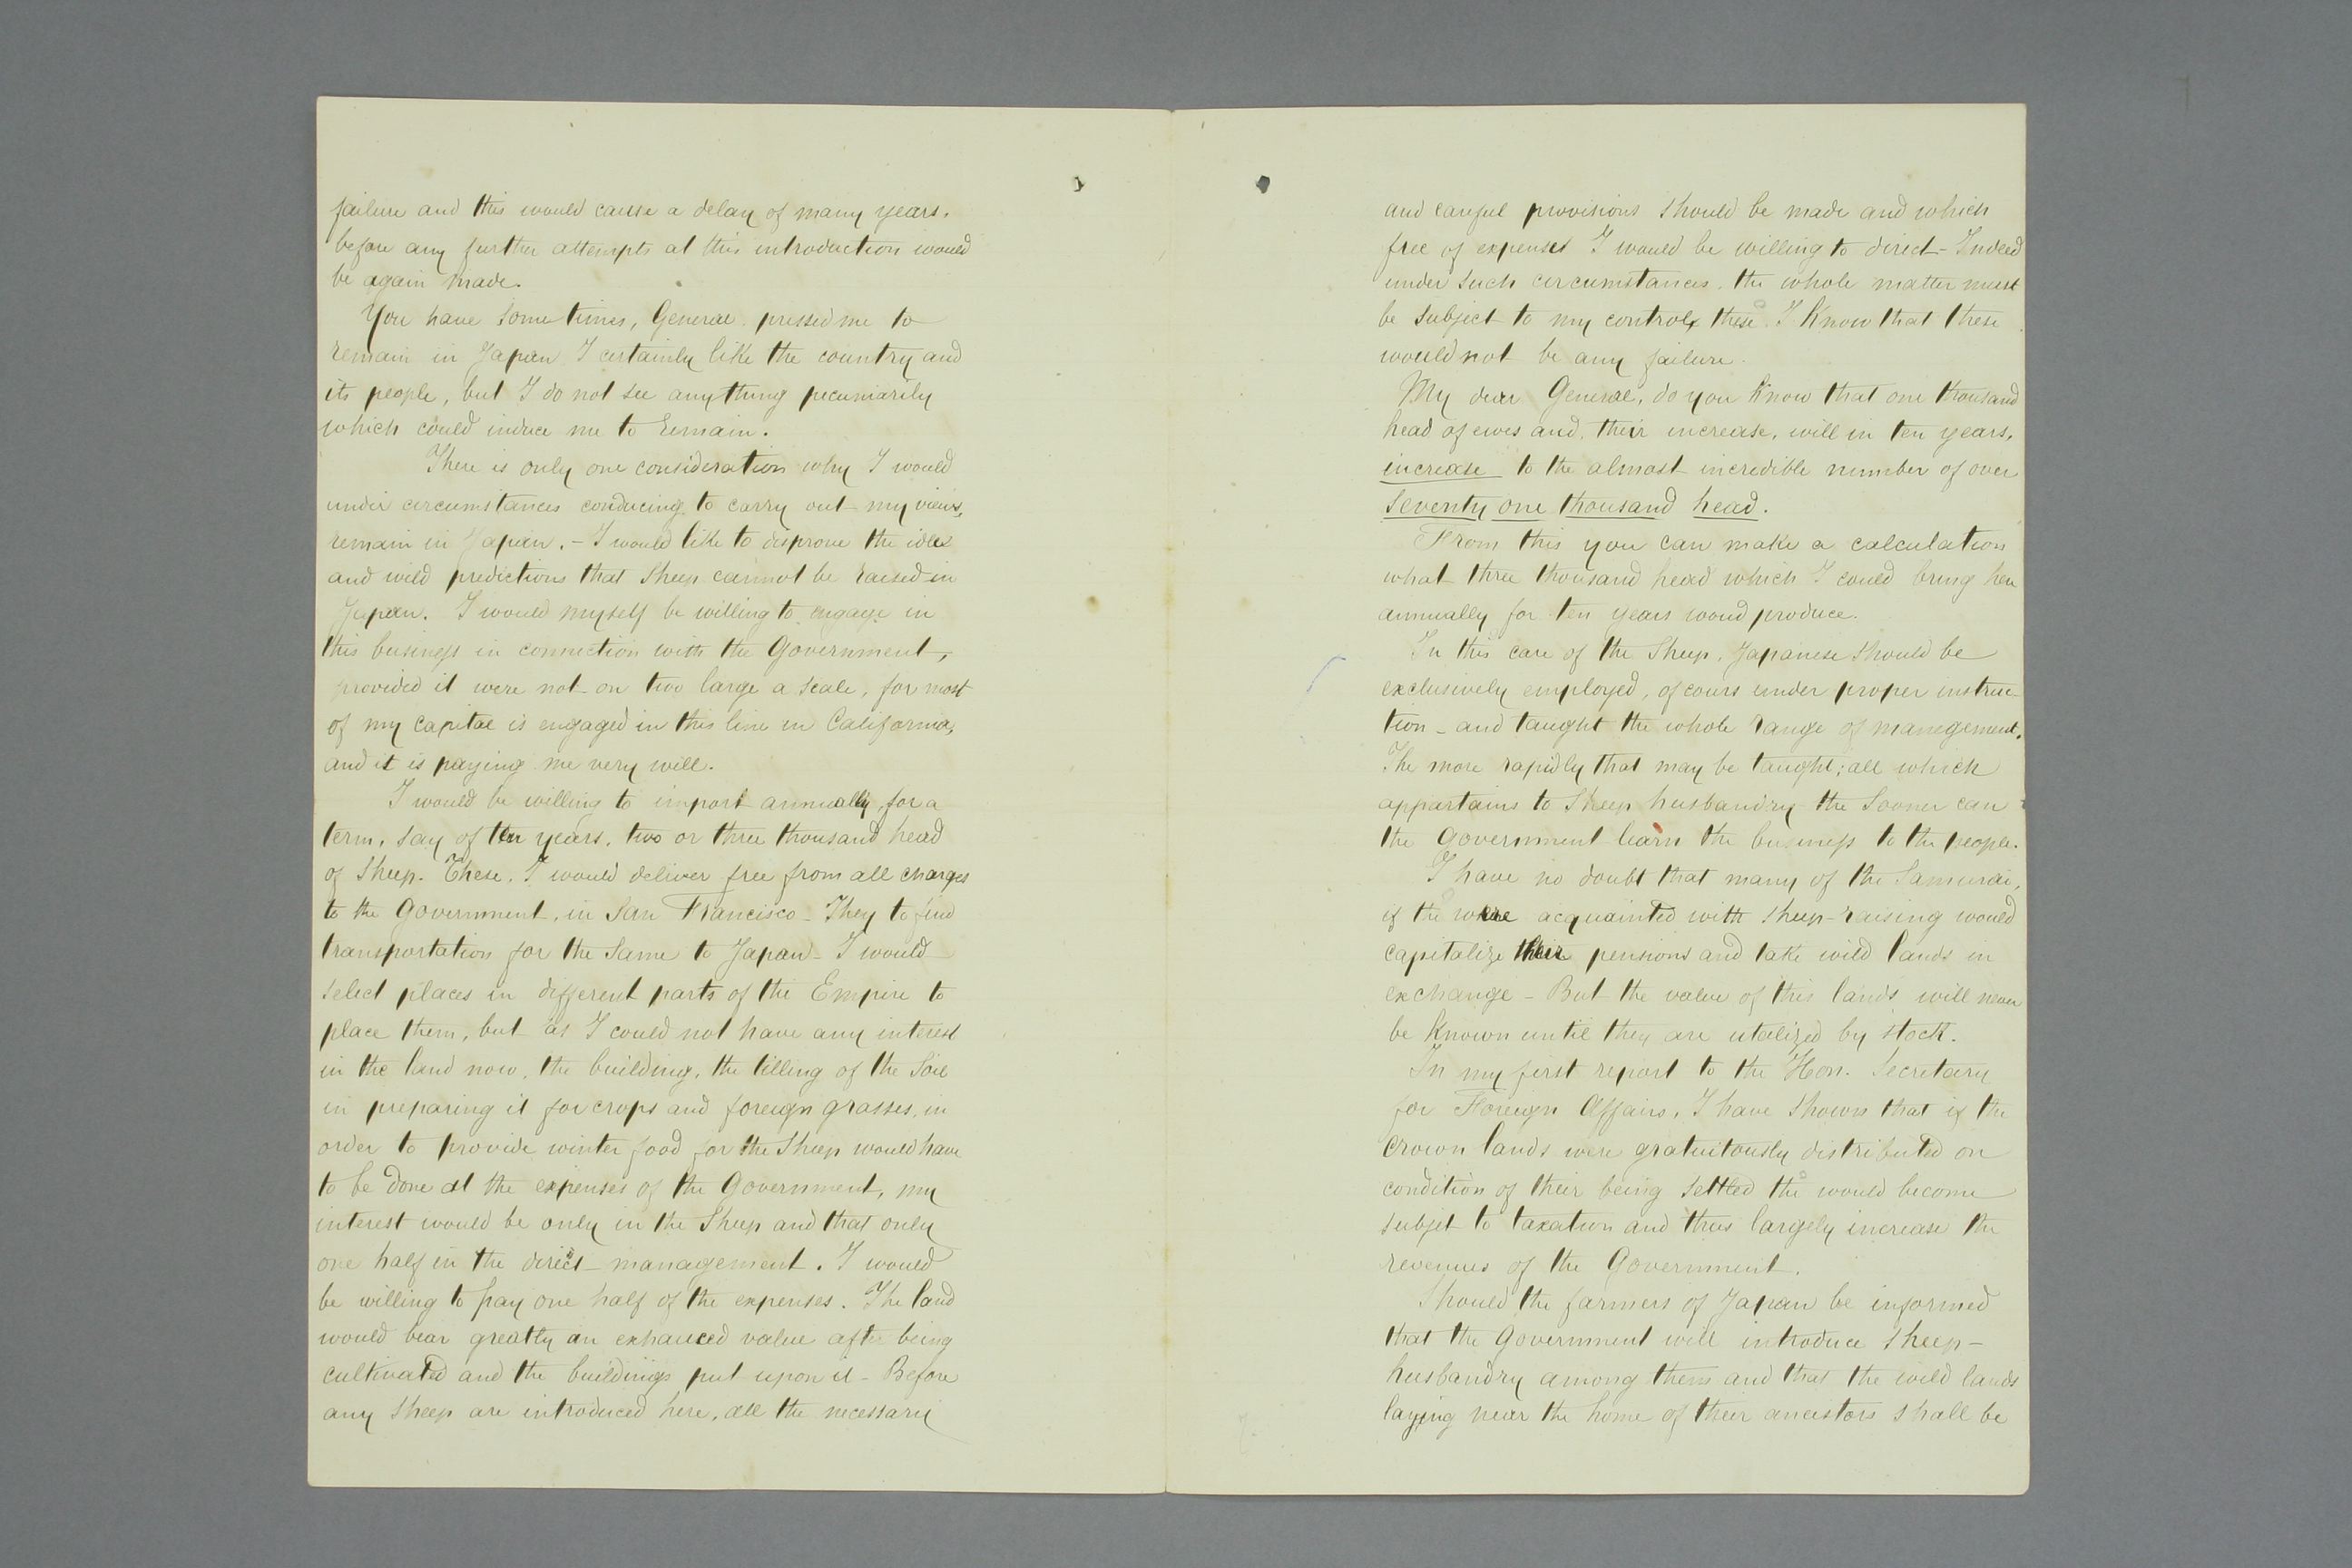 failure and this would cause a delay of many years.
before any further attempts at this introduction would
be again made.
You have sometimes, General pressed me to
remain in Japan I certainly like the country and
its people, but I do not see anything pecuniarily
which could induce me to remain.
There is only one consideration why I would
under circumstances conducing to carry out my views,
remain in Japan. - I would like to disprove the idle
and wild predictions that Sheep cannot be raised in
Japan. I would myself be willing to engage in
this business in connection with the Government,
provided it were not on two large a scale, for most
of my capital is engaged in this line in California,
and it is paying me very well.
I would be willing to import annually, for a
term, say of ten years, two or three thousand head
of Sheep. These. I would deliver free from all charges
to the Government, in San Francisco - They to find
transportation for the Same to Japan - I would
select places in different parts of the Empire to
place them, but as I could not have any interest
in the land now, the building, the tilling of the Soil
in preparing it for crops and foreign grasses, in
order to provide winter food for the Sheep would have
to be done at the expenses of the Government, my
interest would be only in the Sheep and that only
one half in the direct management. I would
be willing to pay one half of the expenses. The land
would bear greatly an exhanced value after being
cultivated and the buildings put upon it - Before
any Sheep are introduced here, all the necessary
and careful provisions should be made and which
free of expenses I would be willing to direct - Indeed
under such circumstances the whole matter must
be subject to my control, these I Know that these
would not be any failure.
My dear General, do you Know that one thousand
head of ewes and their increase, will in ten years,
increase to the almost incredible number of over
seventy one thousand head.
From this you can make a calculation
what three thousand head which I could bring here
annually for ten years woud produce.
In this care of the Sheep, Japanese should be
exclusively employed, of cours under proper instruc-
tion - and taught the whole range of manegement.
The more rapidly that may be taught; all which
appartains to Sheep husbandry the Sooner can
the Government learn the business to the people.
I have no doubt that many of the Samurai,
if the were acquainted with sheep-raising would
capitalize their pensions and take wild lands in
exchange - But the value of this lands will never
be Known until they are utalized by stock.
In my first report to the Hon. Secretary
for Foreign Affairs, I have Shown that if the
crown lands were gratuitously distributed on
condition of their being settled the would become
subjet to taxation and thus largely increase the
revenues of the Government.
Should the farmers of Japan be informed
that the Government will introduce Sheep-
husbandry among them and that the wild lands
laying near the home of their ancestors shall be